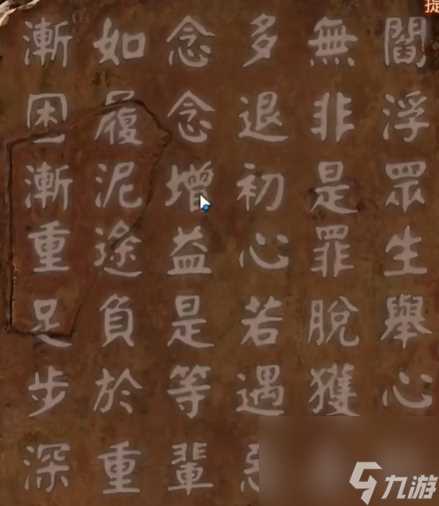 閻浮眾生舉心
無非是罪脫獲
多退初心若遇
念念增益是等輩
如履泥途負於重
漸困漸重足步深
九游